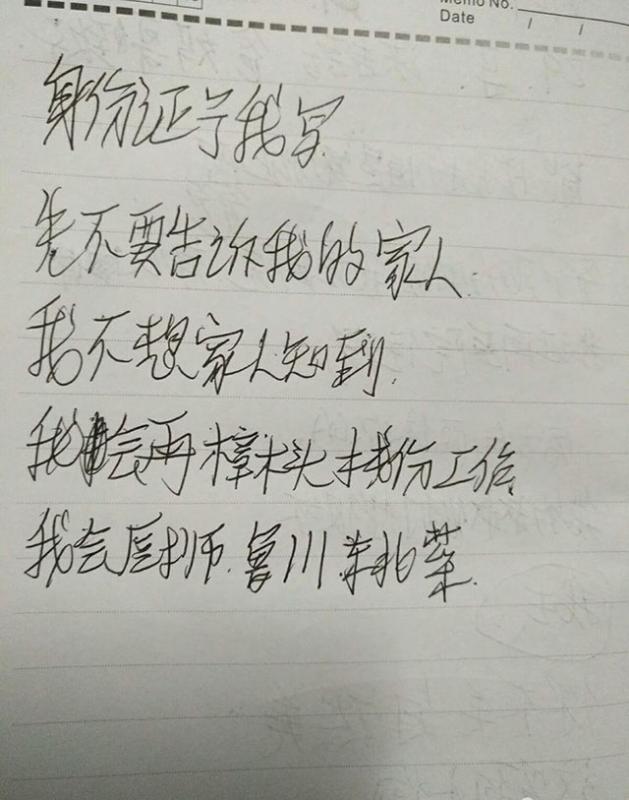 Memo No.
Date / /
身份证号我写.
先不要告诉我的家人.
我不想家人知到.
我会再樟木头找份工作
我会厨师.鲁川东北菜.